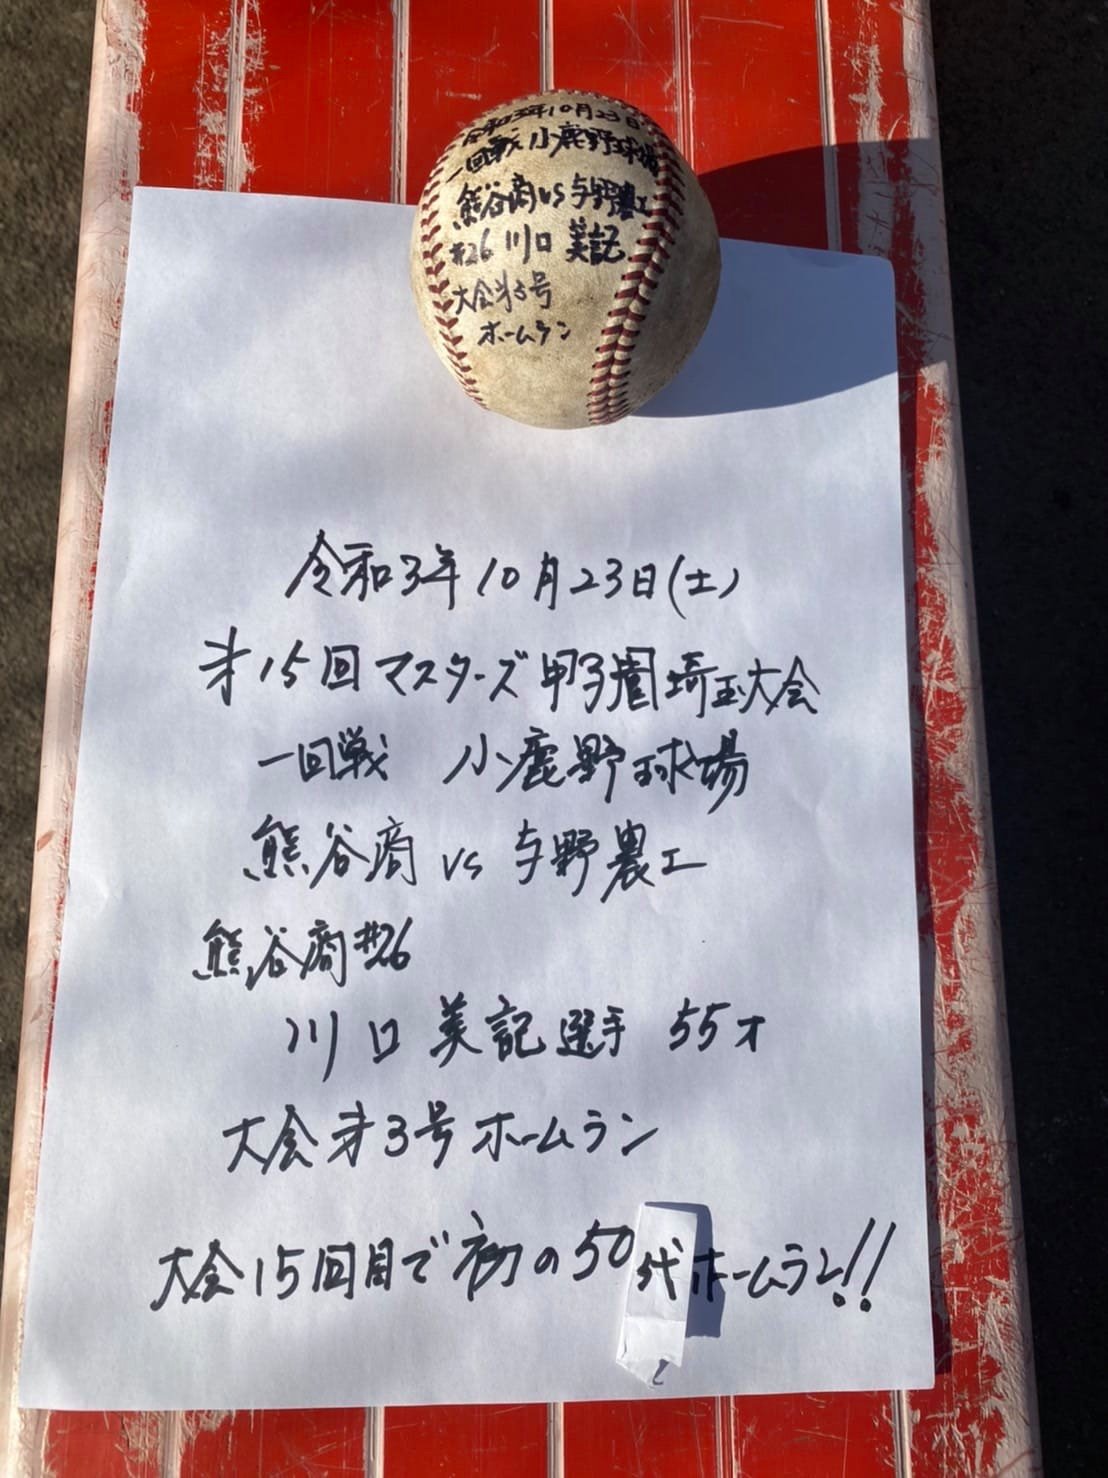 令和3年10月23日
一回戦 小鹿野球場
熊谷商VS与野農工
#26 川口 美記
大会才3号
ホームラン
令和3年10月23日(土)
才15回マスターズ甲子園埼玉大会
一回戦 小鹿野球場
熊谷商 VS 与野農工
熊谷商#26
川口 美記選手 55才
大会才3号ホームラン
大会15回目で初の50代ホームラン!!